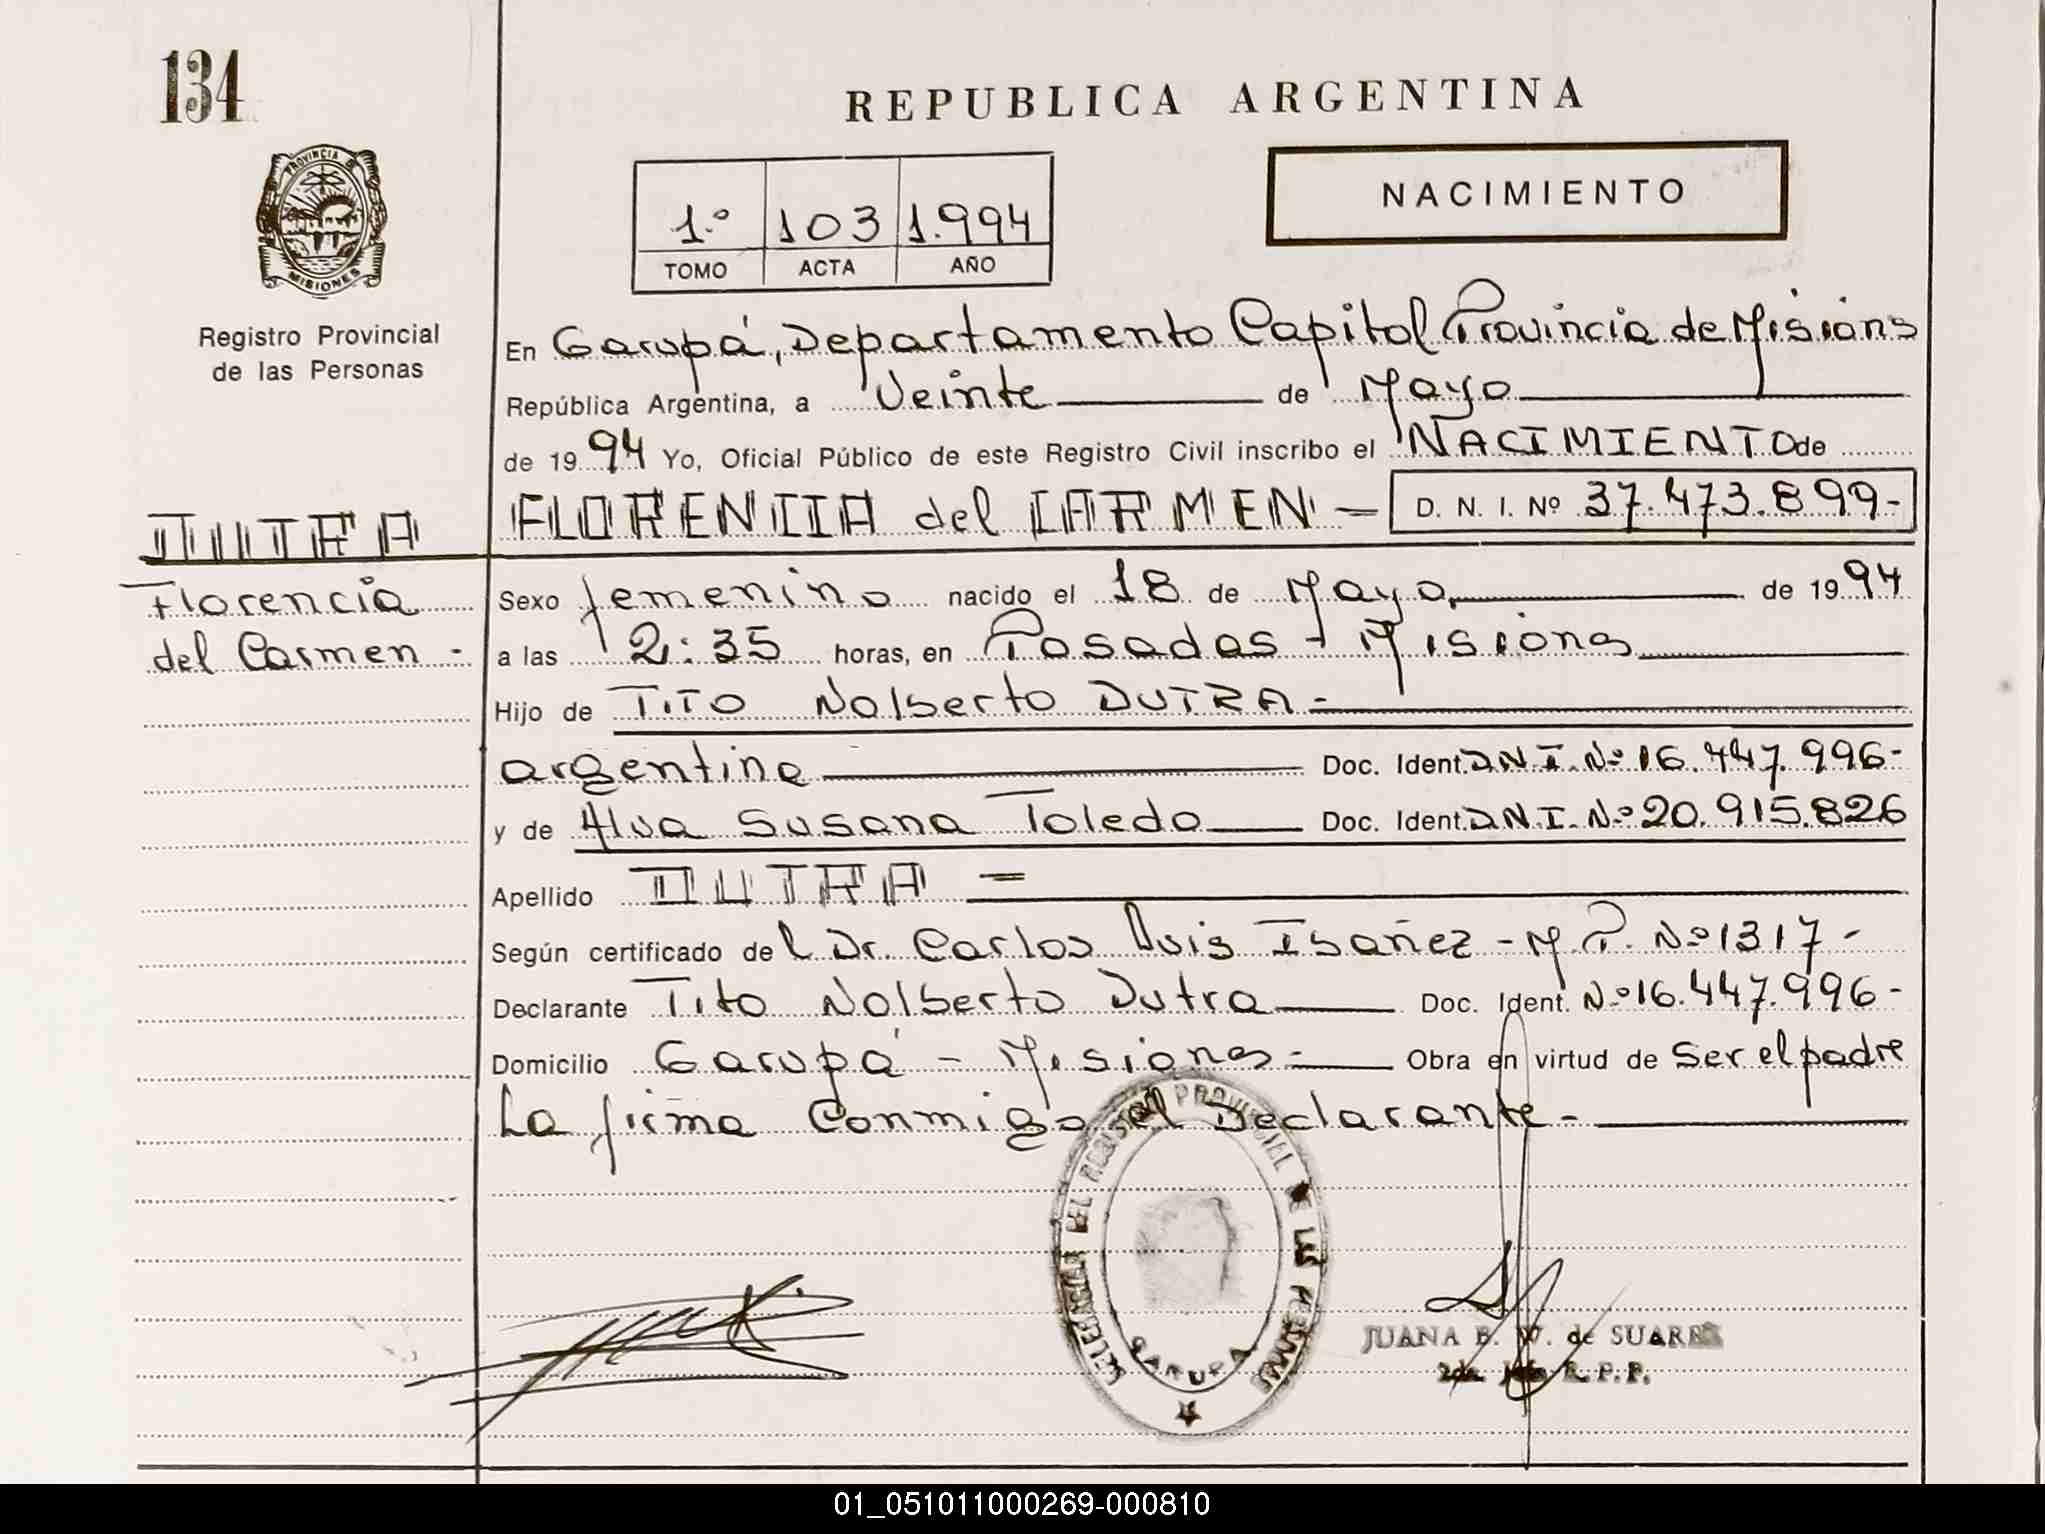 134
REPUBLICA ARGENTINA
PROVINCIA DE
MISIONES
NACIMIENTO
1.º 103 1.994
TOMO ACTA AÑO
Registro Provincial
de las Personas
En Garupá, Departamento Capital Provincia de Misions
República Argentina, a Veinte de Mayo
de 1994 Yo, Oficial Público de este Registro Civil inscribo el NACIMIENTO de
DUTRA
FLORENCIA del CARMEN — D. N. I. Nº 37.473.899-
Florencia
del Carmen -
Sexo femenino nacido el 18 de Mayo, de 1994
a las 2:35 horas, en Posadas - Misions
Hijo de TITO Nolberto DUTRA -
argentina Doc. Ident. D.N.I. Nº 16.447.996-
y de Alva Susana Toledo Doc. Ident. D.N.I. Nº 20.915.826
Apellido DUTRA =
Según certificado del Dr. Carlos Luis Ibañez - M.P. Nº 1317 -
Declarante Tito Nolberto Dutra Doc. Ident. Nº 16.447.996-
Domicilio Garupá - Misiones = Obra en virtud de Ser el padre
La firma Conmigo el Declarante -
DELEGACION DEL REGISTRO PROVINCIAL DE LAS PERSONAS
GARUPA
JUANA B. W. de SUAREZ
2da. Jefe R.P.P.
01_051011000269-000810